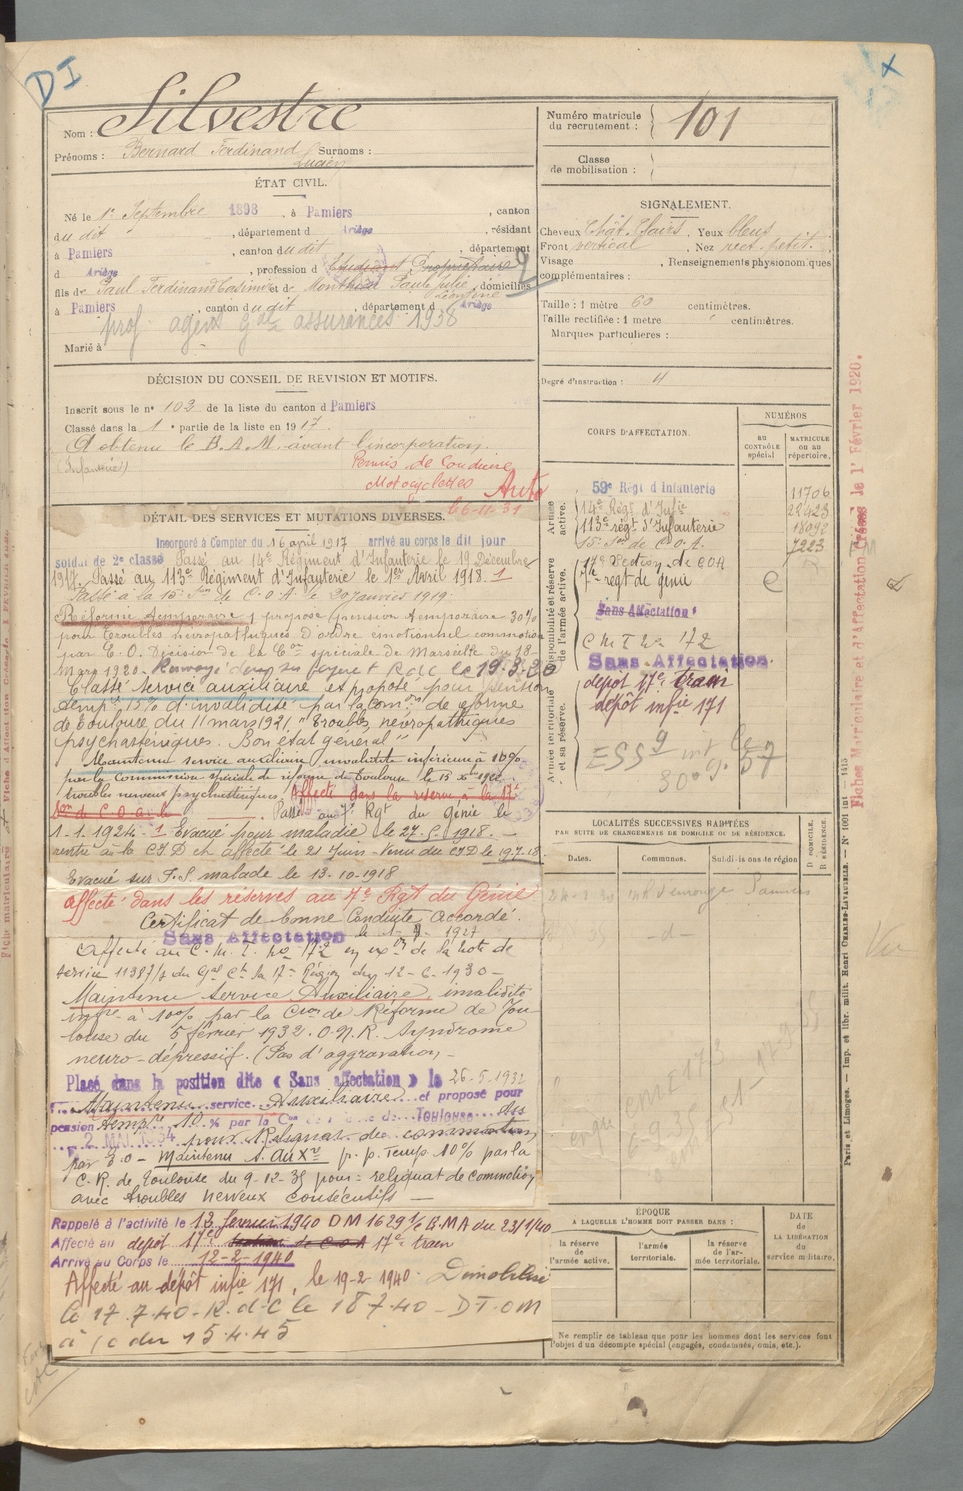 DI
Nom : Silvestre
Prénoms : Bernard Ferdinand Lucien Surnoms :
ÉTAT CIVIL.
Né le 1er Septembre 1898 , à Pamiers , canton
dudit , département d Ariège , résidant
à Pamiers , canton dudit , département
d Ariège , profession d Etudiant Propriétaire
fils de Paul Ferdinand Casimir et de Paule Julie Léontine , domiciliés
à Pamiers , canton dudit , département d Ariège
prof. agent Gal assurances 1938
Marié à
DÉCISION DU CONSEIL DE REVISION ET MOTIFS.
Inscrit sous le n° 103 de la liste du canton d Pamiers
Classé dans la 1e partie de la liste en 1917.
A obtenu le B.A.M. avant l'incorporation.
(Infanterie)
Permis de Conduire
Motocyclettes Auto
le 6-11-31
DÉTAIL DES SERVICES ET MUTATIONS DIVERSES.
Incorporé à Compter du 16 april 1917 arrivé au corps le dit jour
soldat de 2e classe Passé au 14e Régiment d'Infanterie le 19 Décembre
1917. Passé au 113e Régiment d'Infanterie le 1er Avril 1918. 1
Passé à la 15e Son de C.O.A. le 20 janvier 1919.
Réformé temporaire 1 proposé pension temporaire 30%
pour troubles névropathiques d'ordre émotionnel commotion
par E.O. Décision de la Con spéciale de Marseille du 18-
mars 1920. Renvoyé dans ses foyers R.d.C le 19.3.20
Classé service auxiliaire et proposé pour pension
tempre 15% d'invalidité par la Comon de réforme
de Toulouse du 11 mars 1921, "troubles névropathiques
psychasténiques. Bon état général"
Maintenu service auxiliaire invalidité inférieure à 10%
par la Commission spéciale de réforme de Toulouse le 13 Xbre
troubles nerveux psychasténiques. Affecté dans la réserve à la 17e
Son de C.O.A. le Passé au 7e Rgt du Génie le
1-1-1924. 1 Evacué pour maladie le 27-5-1918. —
rentré à la C.I.D et affecté le 21 Juin - Venu du CID le 19.7.18
Evacué sur F.S malade le 13-10-1918
Affecté dans les réserves au 7e Rgt du Génie
Certificat de bonne Conduite accordé.
Sans Affectation le 1-7-1927
Affecté au C.M.T. No 172 en exon de la note de
service 11387/1 du Gal Ct la 17e Région du 12-6-1930 —
Maintenu Service Auxiliaire, invalidité
infre à 10% par la Cion de Réforme de Tou
louse du 5 février 1932. O.N.R. Syndrome
neuro-dépressif. (Pas d'aggravation) —
Placé dans la position dite « Sans affectation » le 26-5-1932
Maintenu service Auxiliaire et proposé pour
pension tempre 10 % par la Con de Toulouse du
2 MAI 1934 pour Reliquat de commotion
par E.O — Maintenu S. auxre p. p. temp. 10% par la
C.R. de Toulouse du 9-12-35 pour : reliquat de commotion
avec troubles nerveux consécutifs —
Rappelé à l'activité le 13 février 1940 DM 1629 1/c EMA du 23/1/40
Affecté au dépôt 17e section de C.O.A 17e train
Arrivé au Corps le 12-2-1940
Affecté au dépôt infie 171, le 19-2-1940. Démobilisé
le 17.7.40 - R.d.C le 18.7.40 - DT.OM
à /c du 15.4.45
Numéro matricule
du recrutement : 101
Classe
de mobilisation :
SIGNALEMENT.
Cheveux Chât. Clairs. Yeux bleus
Front vertical , Nez rect. petit.
Visage , Renseignements physionomiques
complémentaires :
Taille : 1 mètre 60 centimètres.
Taille rectifiée : 1 mètre centimètres.
Marques particulières :
Degré d'instruction : 4
CORPS D'AFFECTATION.
NUMÉROS
AU CONTRÔLE spécial
MATRICULE OU AU répertoire.
Armée active.
59e Régt d Infanterie 11706
14e Régt d'Infie 22423
113e régt d'Infanterie 18092
15e Son de C.O.A. 7223
Disponibilité et réserve de l'armée active.
17e Section de COA
7e régt de génie
C
Sans Affectation
C M T No 172
Sans Affectation.
dépôt 17e train
dépôt infie 171
Armée territoriale et sa réserve.
ESS
LOCALITÉS SUCCESSIVES HABITÉES
PAR SUITE DE CHANGEMENTS DE DOMICILE OU DE RÉSIDENCE.
Dates.
Communes.
Subdivisions de région
D DOMICILE.
R RÉSIDENCE
Pamiers
- d -
ÉPOQUE
A LAQUELLE L'HOMME DOIT PASSER DANS :
la réserve de l'armée active.
l'armée territoriale.
la réserve de l'armée territoriale.
DATE de LA LIBÉRATION du service militaire.
Ne remplir ce tableau que pour les hommes dont les services font
l'objet d'un décompte spécial (engagés, condamnés, omis, etc.).
Fiches Matriculaire et d'Affectation Créées le 1er Février 1920.
Paris et Limoges. — Imp. et libr. milit. Henri CHARLES-LAVAUZELLE. — N° 1001